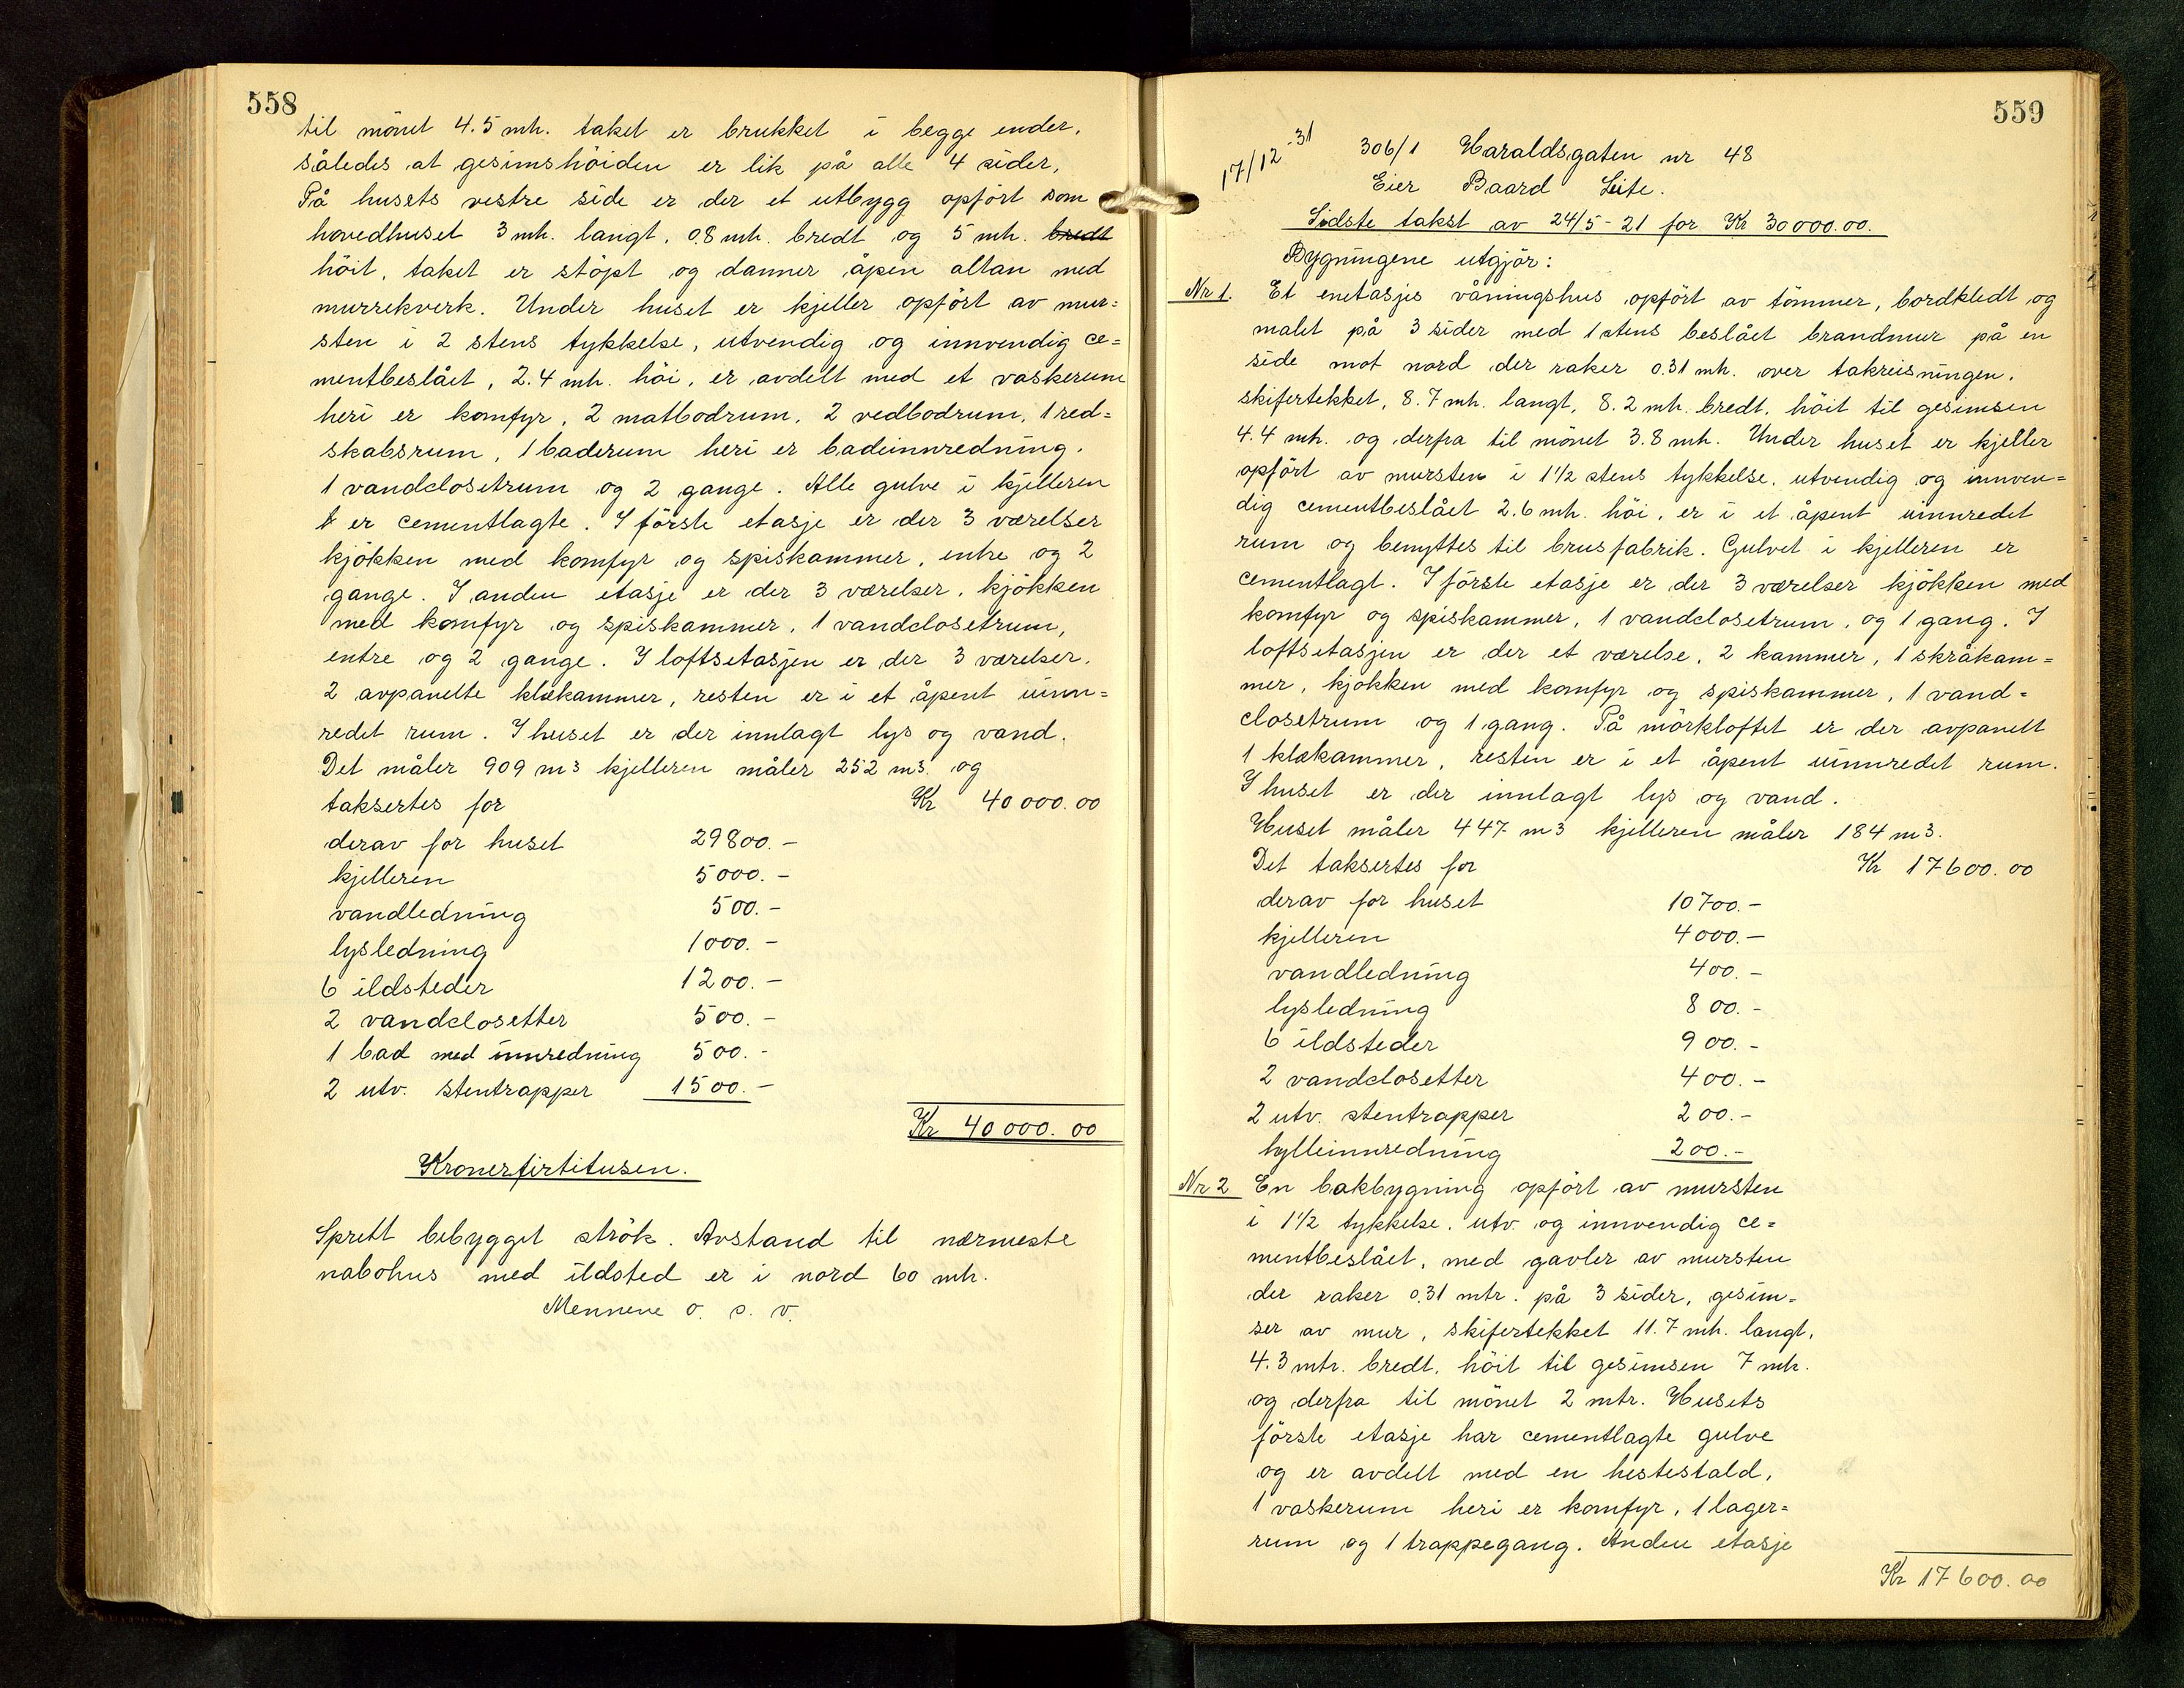 558
til mönet 4.5 mtr. taket er brukket i begge ender,
således at gesimshöiden er lik på alle 4 sider,
På husets vestre side er der et utbygg opfört som
hovedhuset 3 mtr. langt, 0.8 mtr. bredt og 5 mtr. bredt
höit, taket er stöpt og danner åpen altan med
murrekverk. Under huset er kjeller opfört av mur=
sten i 2 stens tykkelse, utvendig og innvendig ce=
mentbeslået, 2.4 mtr. höi, er avdelt med et vaskerum
heri er komfyr, 2 matbodrum, 2 vedbodrum, 1 red=
skabsrum, 1 baderum heri er badeinnredning,
1 vandclosetrum og 2 gange. Alle gulve i kjelleren
er cementlagte. I förste etasje er der 3 værelser
kjökken med komfyr og spiskammer, entre og 2
gange. I anden etasje er der 3 værelser, kjökken
med komfyr og spiskammer, 1 vandclosetrum,
entre og 2 gange. I loftsetasjen er der 3 værelser,
2 avpanelte klækammer, resten er i et åpent uinn=
redet rum. I huset er der innlagt lys og vand.
Det måler 909 m3 kjelleren måler 252 m3. og
taksertes for Kr 40 000.00
derav for huset 29800.-
kjelleren 5000.-
vandledning 500.-
lysledning 1000.-
6 ildsteder 1200.-
2 vandclosetter 500.-
1 bad med innredning 500.-
2 utv. stentrapper 1500.-
Kr 40 000.00
Kronerfirtitusen.
Spredt bebygget strök. Avstand til nærmeste
nabohus med ildsted er i nord 60 mtr.
Mennene o. s. v.
559
17/12-31
306/1 Haraldsgaten nr 48
Eier Baard Leite.
Sidste takst av 24/5-21 for Kr 30 000.00.
Bygningene utgjör:
Nr 1. Et enetasjes våningshus opfört av tömmer, bordkledt og
malet på 3 sider med 1 stens beslået brandmur på en
side mot nord der raker 0.31 mtr. over takreisningen,
skifertekket, 8.7 mtr. langt, 8.2 mtr. bredt, höit til gesimsen
4.4 mtr. og derfra til mönet 3.8 mtr. Under huset er kjeller
opfört av mursten i 1½ stens tykkelse, utvendig og innven=
dig cementbeslået 2.6 mtr. höi, er i et åpent uinnredet
rum og benyttes til brusfabrik. Gulvet i kjelleren er
cementlagt. I förste etasje er der 3 værelser kjökken med
komfyr og spiskammer, 1 vandclosetrum, og 1 gang. I
loftsetasjen er der et værelse, 2 kammer, 1 skråkam=
mer, kjökken med komfyr og spiskammer, 1 vand=
closetrum og 1 gang. På mörkloftet er der avpanelt
1 klækammer, resten er i et åpent uinnredet rum.
I huset er der innlagt lys og vand.
Huset måler 447 m3 kjelleren måler 184 m3.
Det taksertes for Kr 17600.00
derav for huset 10700.-
kjelleren 4000.-
vandledning 400.-
lysledning 800.-
6 ildsteder 900.-
2 vandclosetter 400.-
2 utv. stentrapper 200.-
hylleinnredning 200.-
Nr 2 En bakbygning opfört av mursten
i 1½ tykkelse, utv. og innvendig ce=
mentbeslået, med gavler av mursten
der raker 0.31 mtr. på 3 sider, gesim=
ser av mur, skifertekket 11.7 mtr. langt,
4.3 mtr. bredt, höit til gesimsen 7 mtr.
og derfra til mönet 2 mtr. Husets
förste etasje har cementlagte gulve
og er avdelt med en hestestald,
1 vaskerum heri er komfyr, 1 lager=
rum og 1 trappegang. Anden etasje
Kr 17600.00